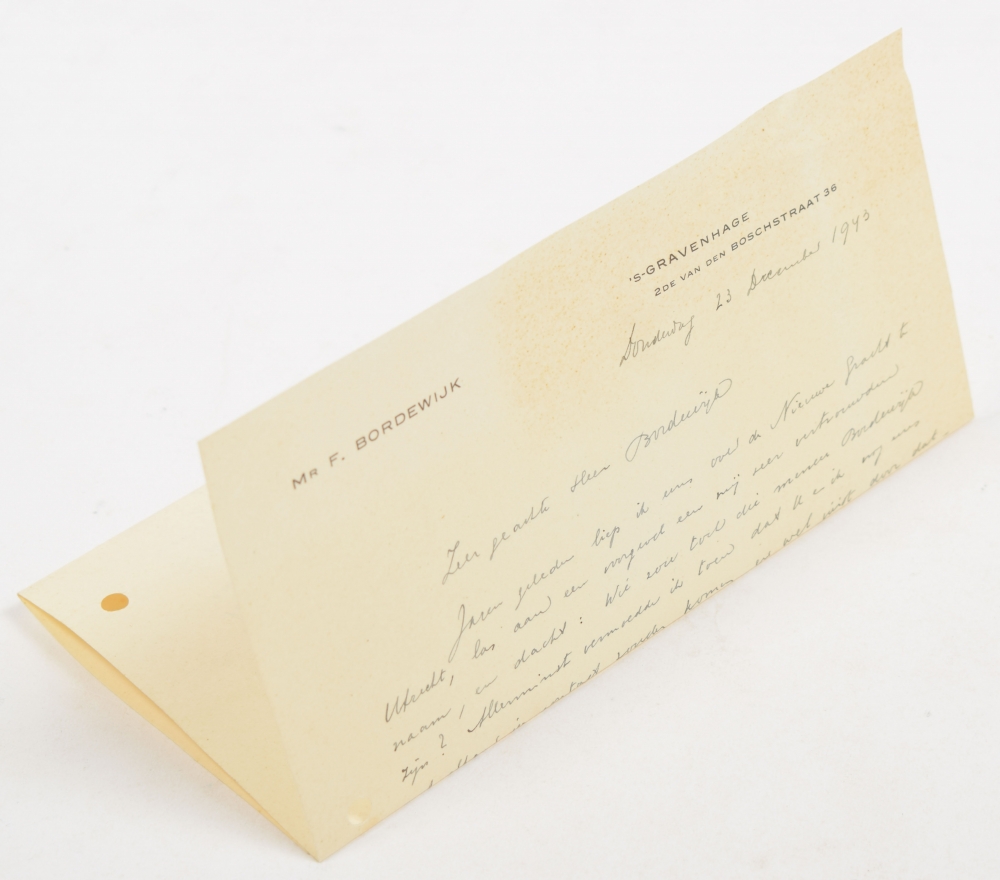 Mr F. BORDEWIJK
'S-GRAVENHAGE
2DE VAN DEN BOSCHSTRAAT 36
Donderdag 23 December 1943
Zeer geachte Heer Bordewijk
Jaren geleden liep ik eens over de Nieuwe Gracht te
Utrecht, las aan een voorgevel een mij zeer vertrouwden
naam, en dacht: Wie zou toch die meneer Bordewijk
zijn? Allerminst vermoedde ik toen dat U en ik nog eens
in contact zouden komen, en wel juist door dat